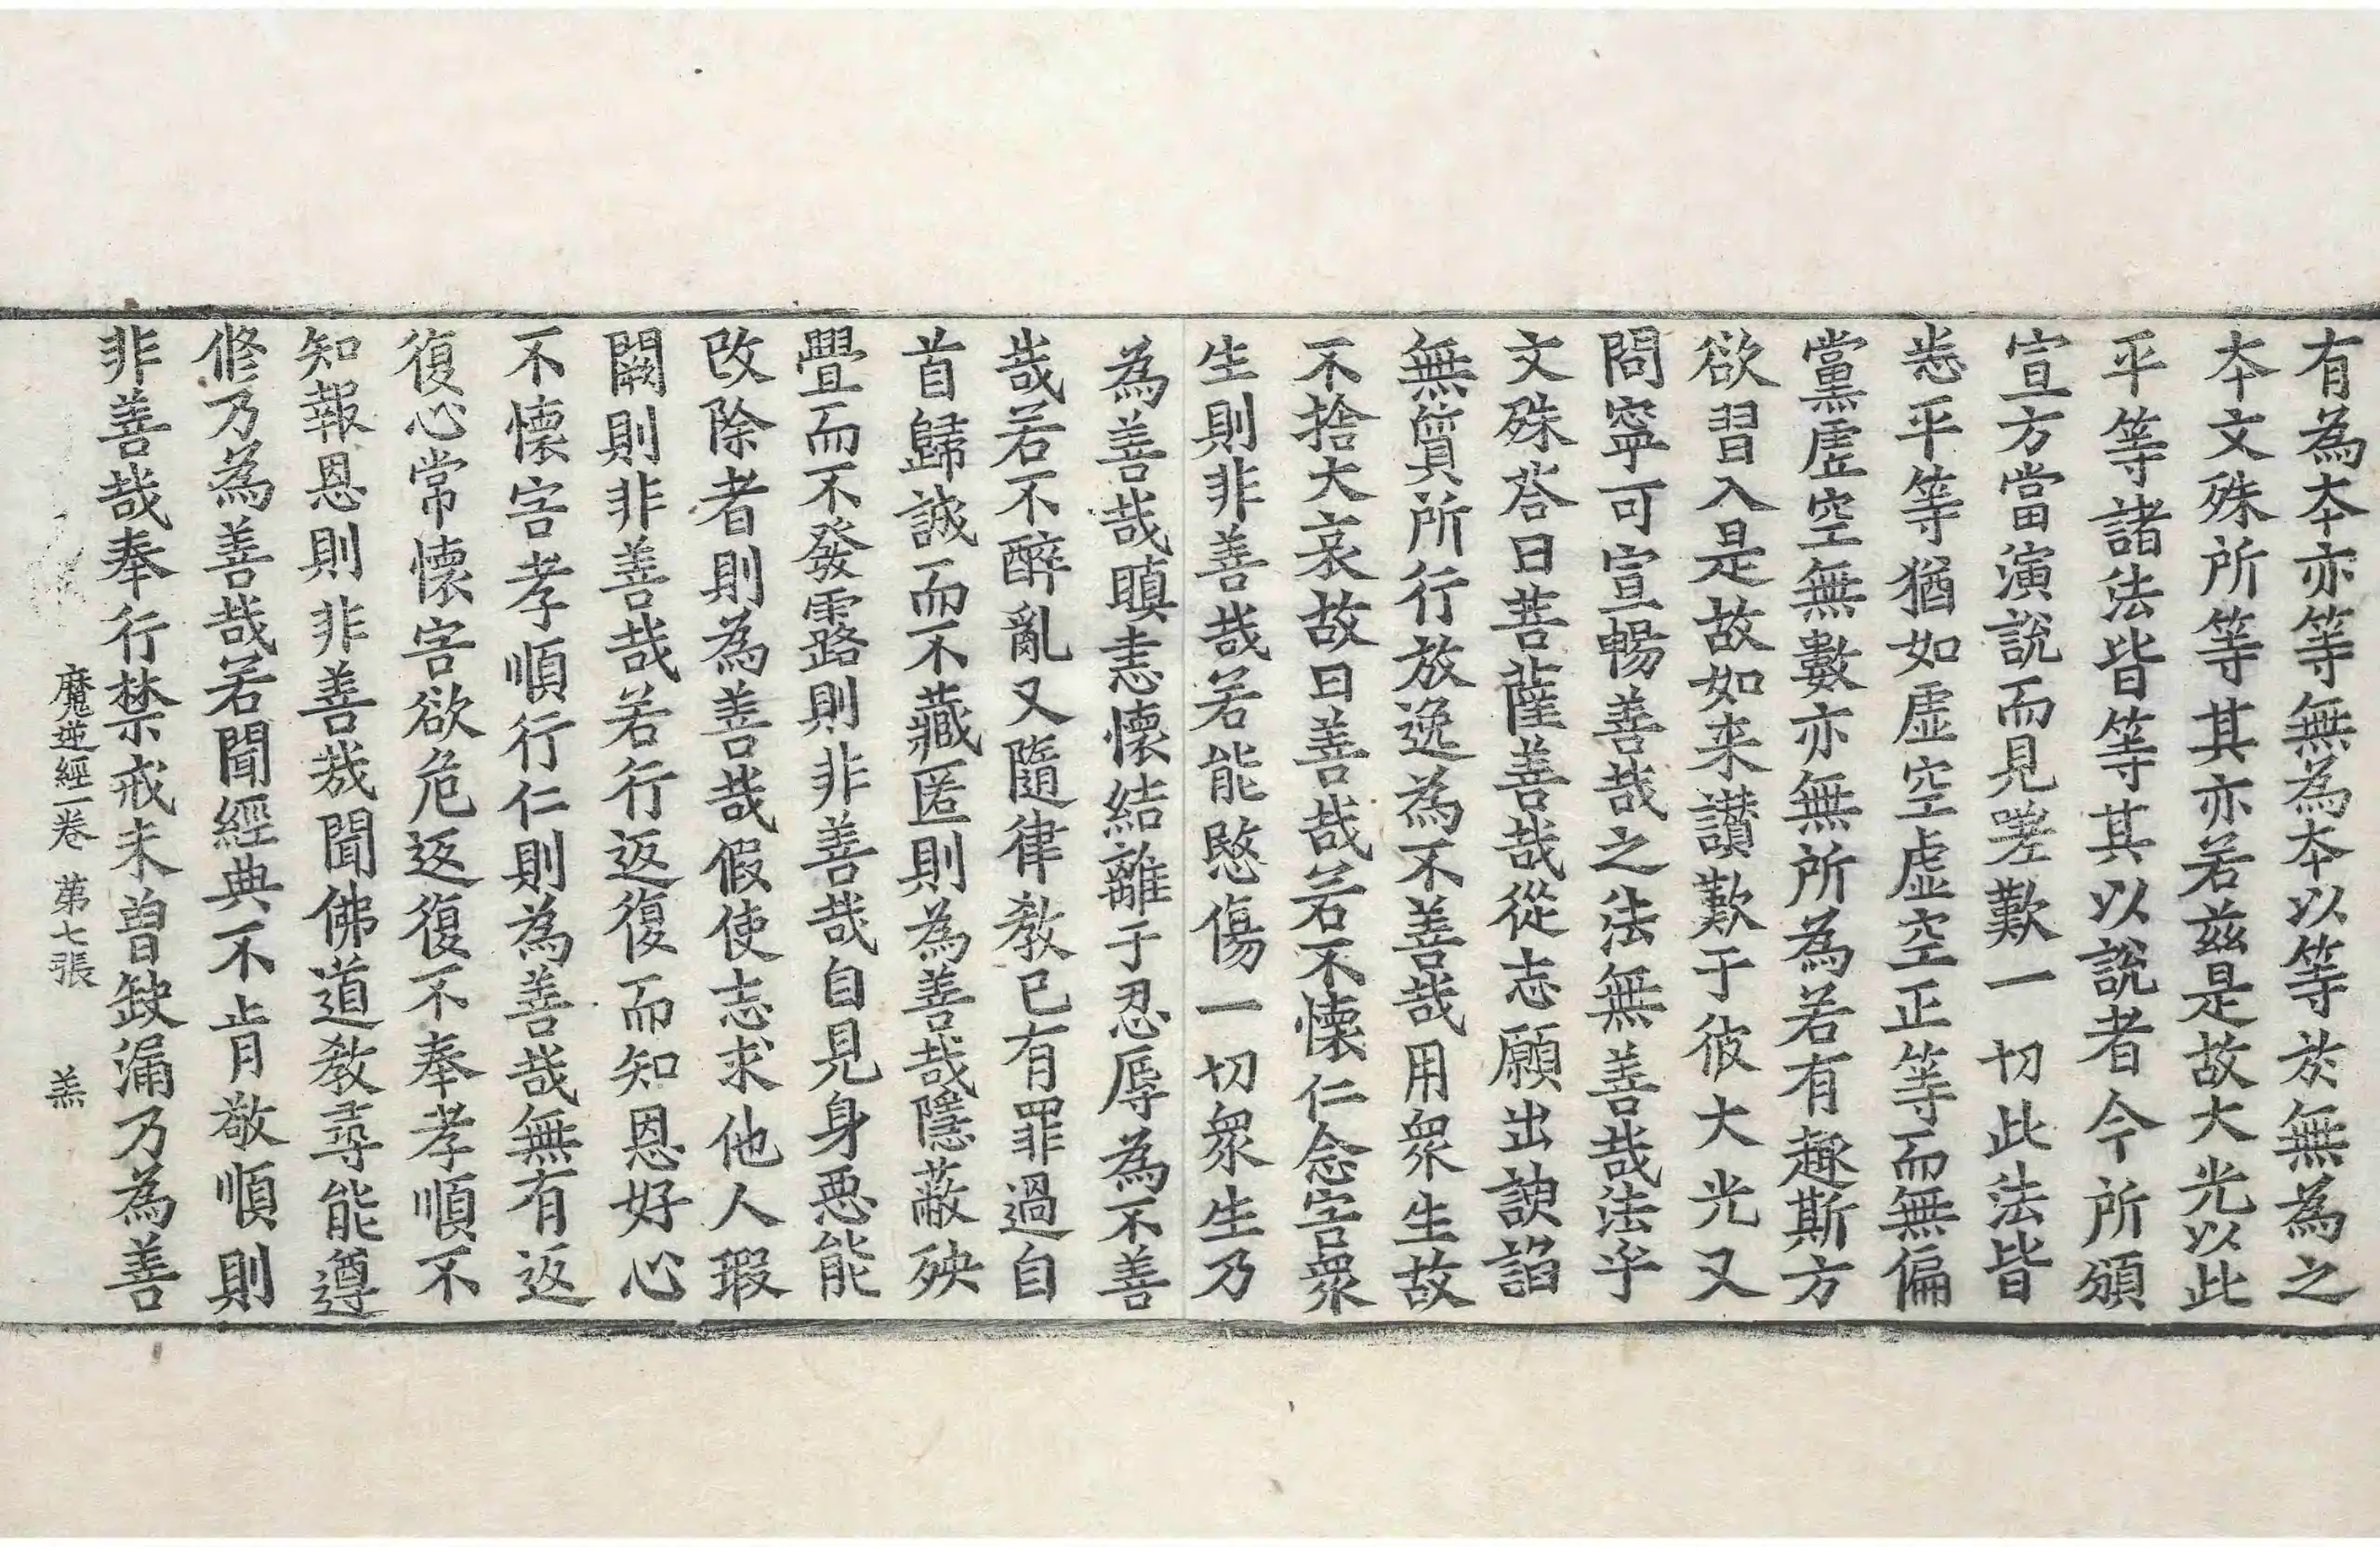 有為本亦等無為本以等於無為之
本文殊所等其亦若茲是故大光以此
平等諸法皆等其以說者今所頒
宣方當演說而見嗟歎一切此法皆
悉平等猶如虛空虛空正等而無偏
黨虛空無數亦無所為若有趣斯方
欲習入是故如来讃歎于彼大光又
問寧可宣暢善哉之法無善哉法乎
文殊荅曰菩薩善哉從志願出諛諂
無質所行放逸為不善哉用衆生故
不捨大哀故曰善哉若不懷仁念害衆
生則非善哉若能愍傷一切衆生乃
為善哉瞋恚懷結離于忍辱為不善
哉若不醉亂又隨律教已有罪過自
首歸誠而不藏匿則為善哉隱蔽殃
舋而不發露則非善哉自見身惡能
改除者則為善哉假使志求他人瑕
闕則非善哉若行返復而知恩好心
不懷害孝順行仁則為善哉無有返
復心常懷害欲危返復不奉孝順不
知報恩則非善哉聞佛道教尋能遵
修乃為善哉若聞經典不肯敬順則
非善哉奉行禁戒未曾缺漏乃為善
魔逆經一卷 第七張 羔